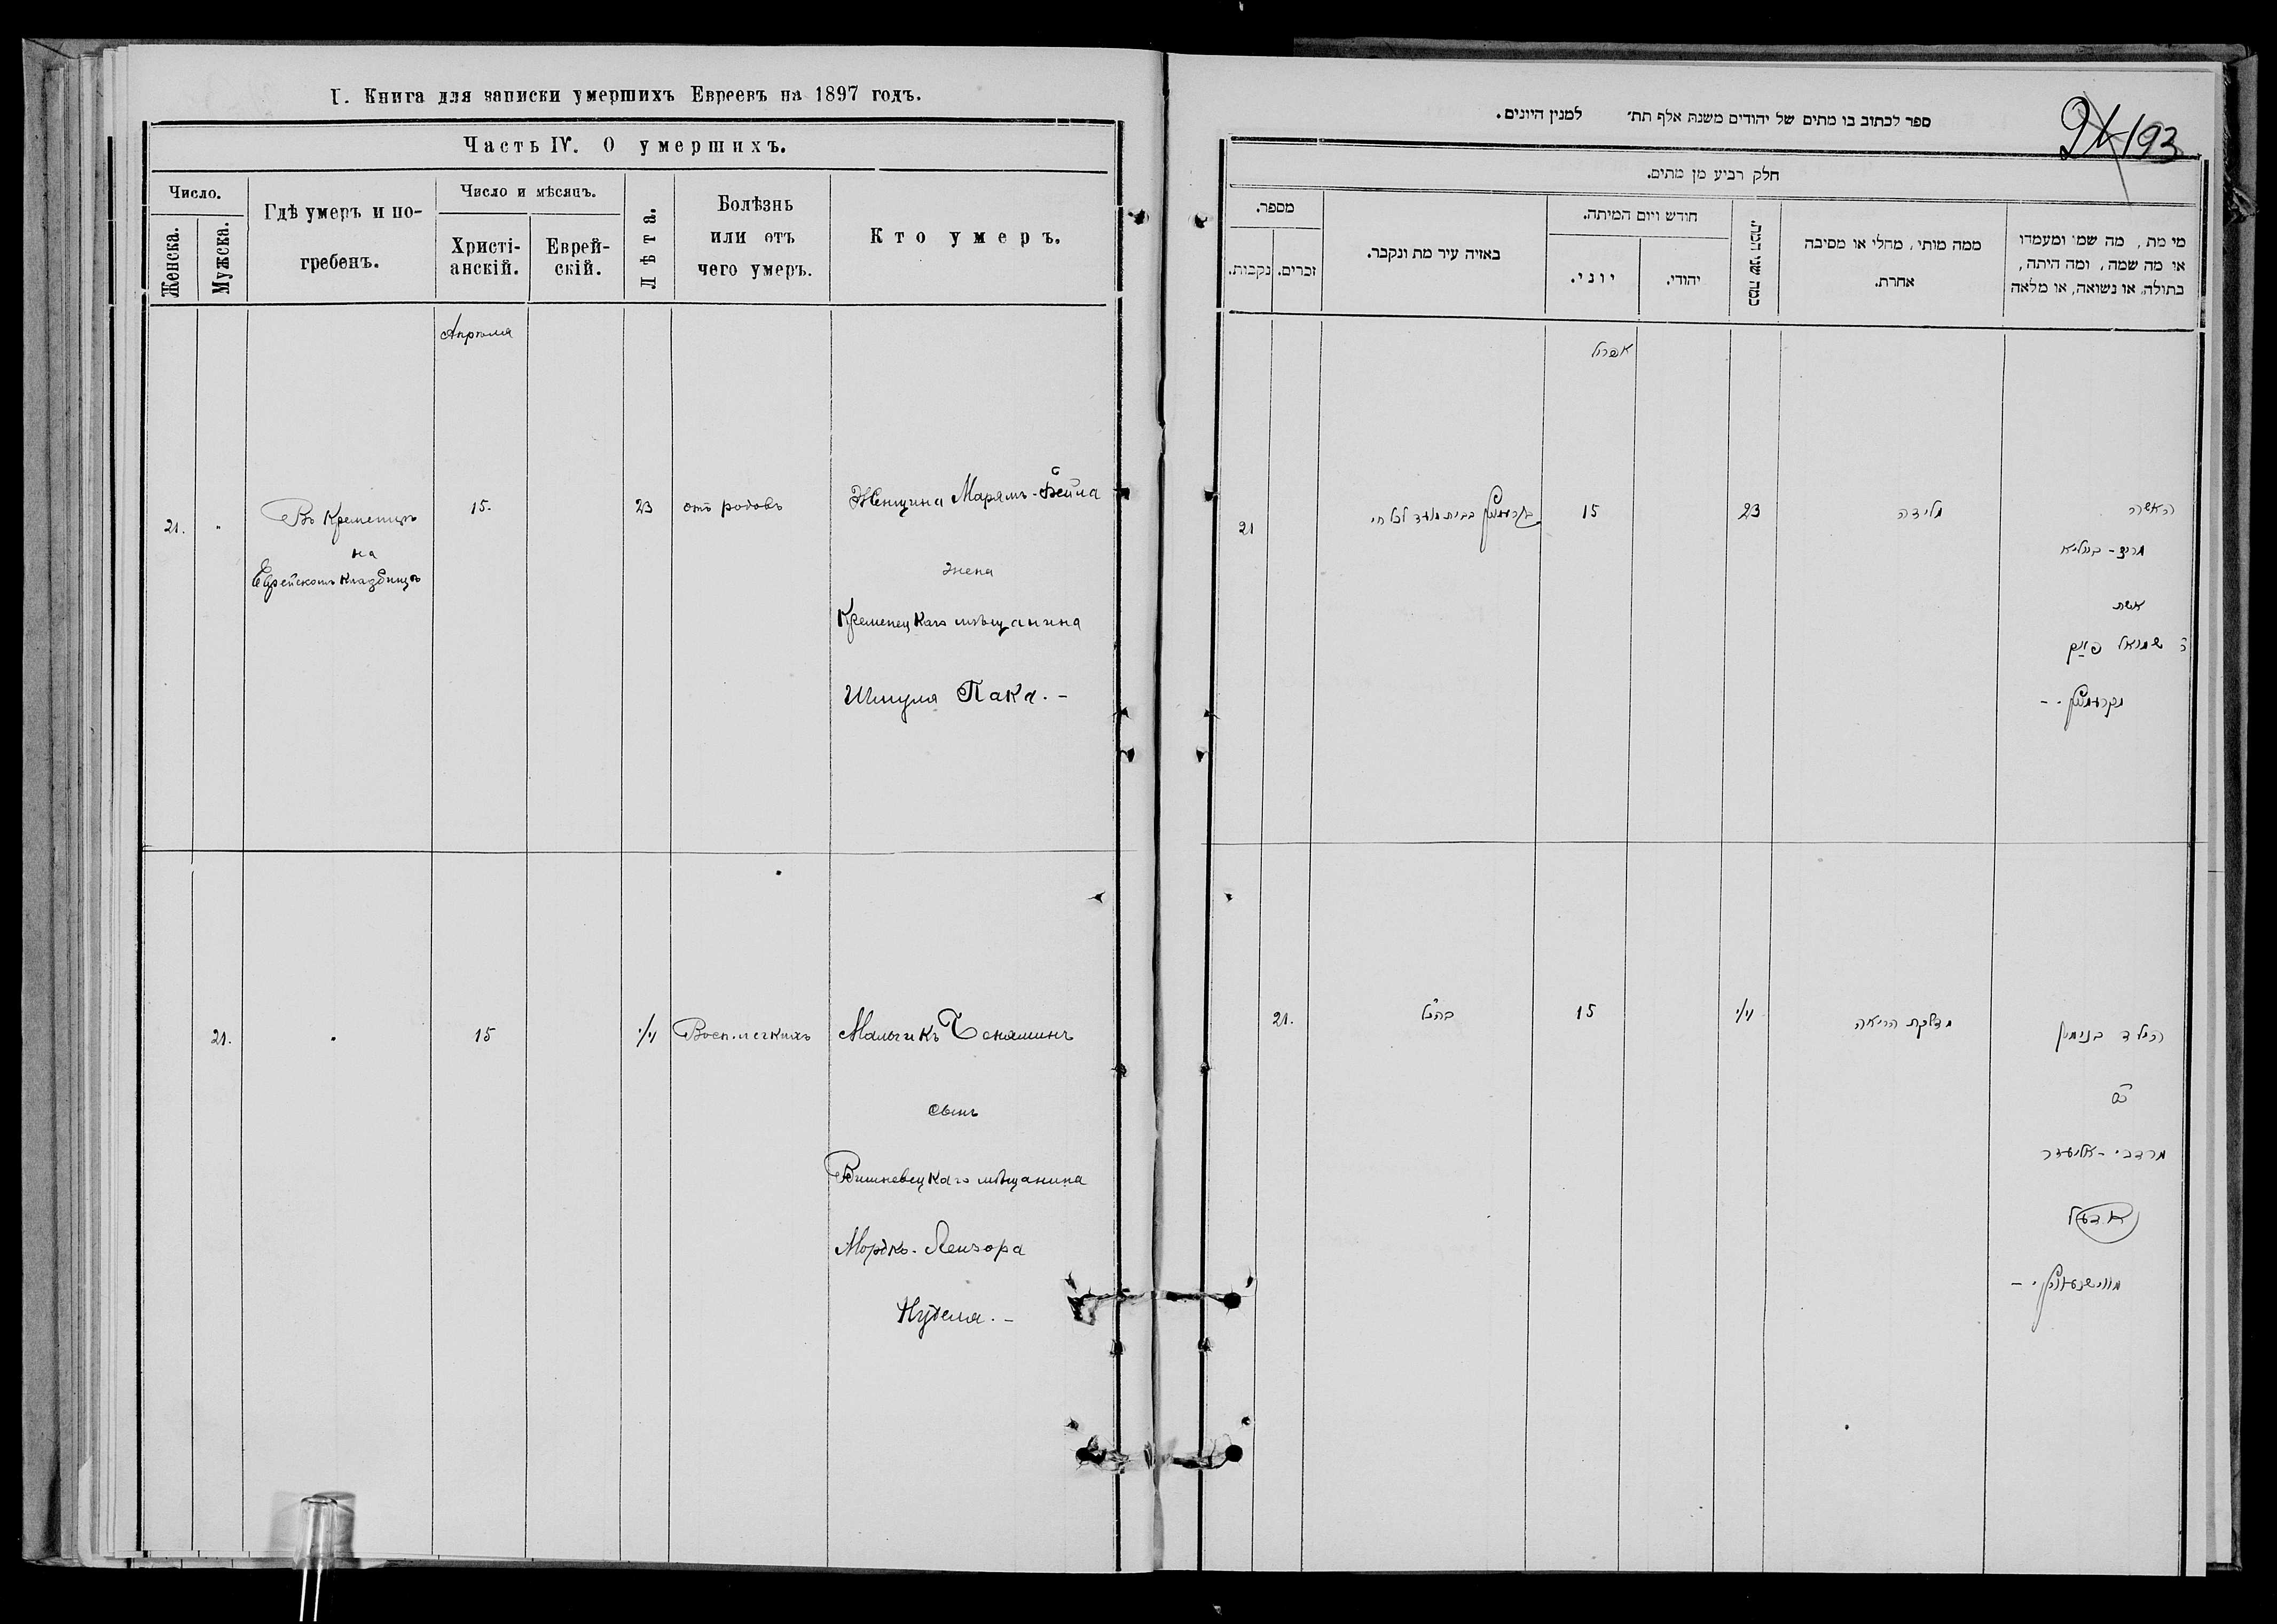 I. Книга для записки умершихъ Евреевъ на 1897 годъ.
Часть IV. О умершихъ.
Число.
Женска.
Мужска.
Гдѣ умеръ и по-
гребенъ.
Число и мѣсяцъ.
Христі-
анскій.
Еврей-
скій.
Лѣта.
Болѣзнь
или отъ
чего умеръ.
Кто умеръ.
Апрѣля
21.
"
Въ Кременцѣ
на
Еврейскомъ кладбищѣ
15.
23
отъ родовъ
Женщина Марямъ-Бейла
жена
Кременецкаго мѣщанина
Шмуля Пака. -
21.
"
15
Восп. легкихъ
Мальчикъ Беняминъ
сынъ
Вишневецкаго мѣщанина
Мордко-Лейзора
Нуделя. -
ספר לכתוב בו מתים של יהודים משנת אלף תת׳ למנין היונים.
193
חלק רביע מן מתים.
מספר.
נקבות.
זכרים.
באיזה עיר מת ונקבר.
חודש ויום המיתה.
יוני.
יהודי.
כמה שני המת.
ממה מותי, מחלי או מסיבה
אחרת.
מי מת, מה שמו ומעמדו
או מה שמה, ומה היתה,
בתולה, או נשואה, או מלאה
אפריל
21
15
23
מלידה
האשה
מרים - ביילא
אשת
ר׳ שמואל פאק
21.
כהנ״ל
15
מדלקת הריאה
הילד בנימין
מרדכי - אליעזר